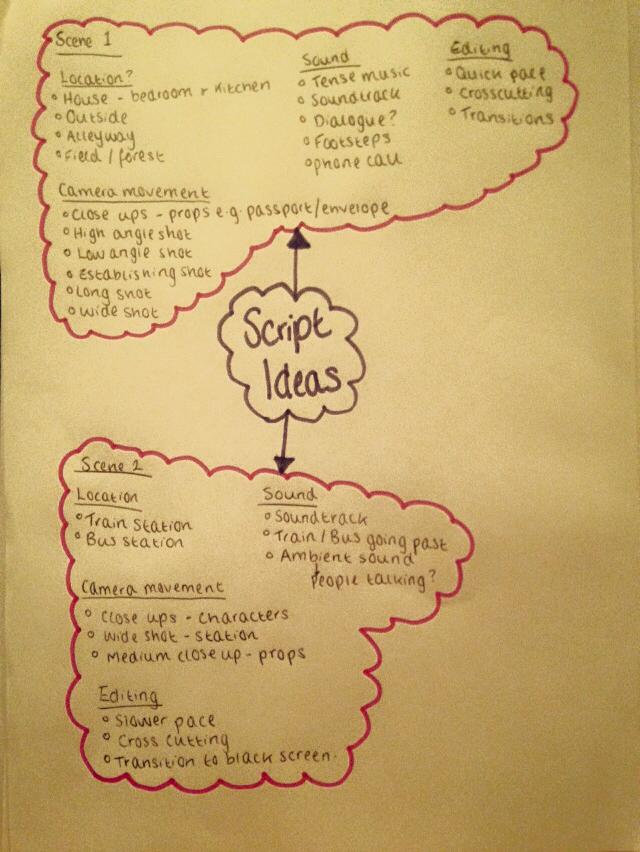 Scene 1
Location?
° House - bedroom + Kitchen
° Outside
° Alleyway
° Field / forest
Sound
° Tense music
° Soundtrack
° Dialogue?
° Footsteps
° phone call
Editing
° Quick pace
° Crosscutting
° Transitions
Camera movement
° Close ups - props e.g. passport/envelope
° High angle shot
° Low angle shot
° Establishing shot
° Long shot
° Wide shot
Script
Ideas
Scene 2
Location
° Train Station
° Bus station
Sound
° Soundtrack
° Train / Bus going past
° Ambient sound
People talking?
Camera movement
° Close ups - characters
° Wide shot - station
° Medium close up - props
Editing
° Slower pace
° Cross cutting
° Transition to black screen.